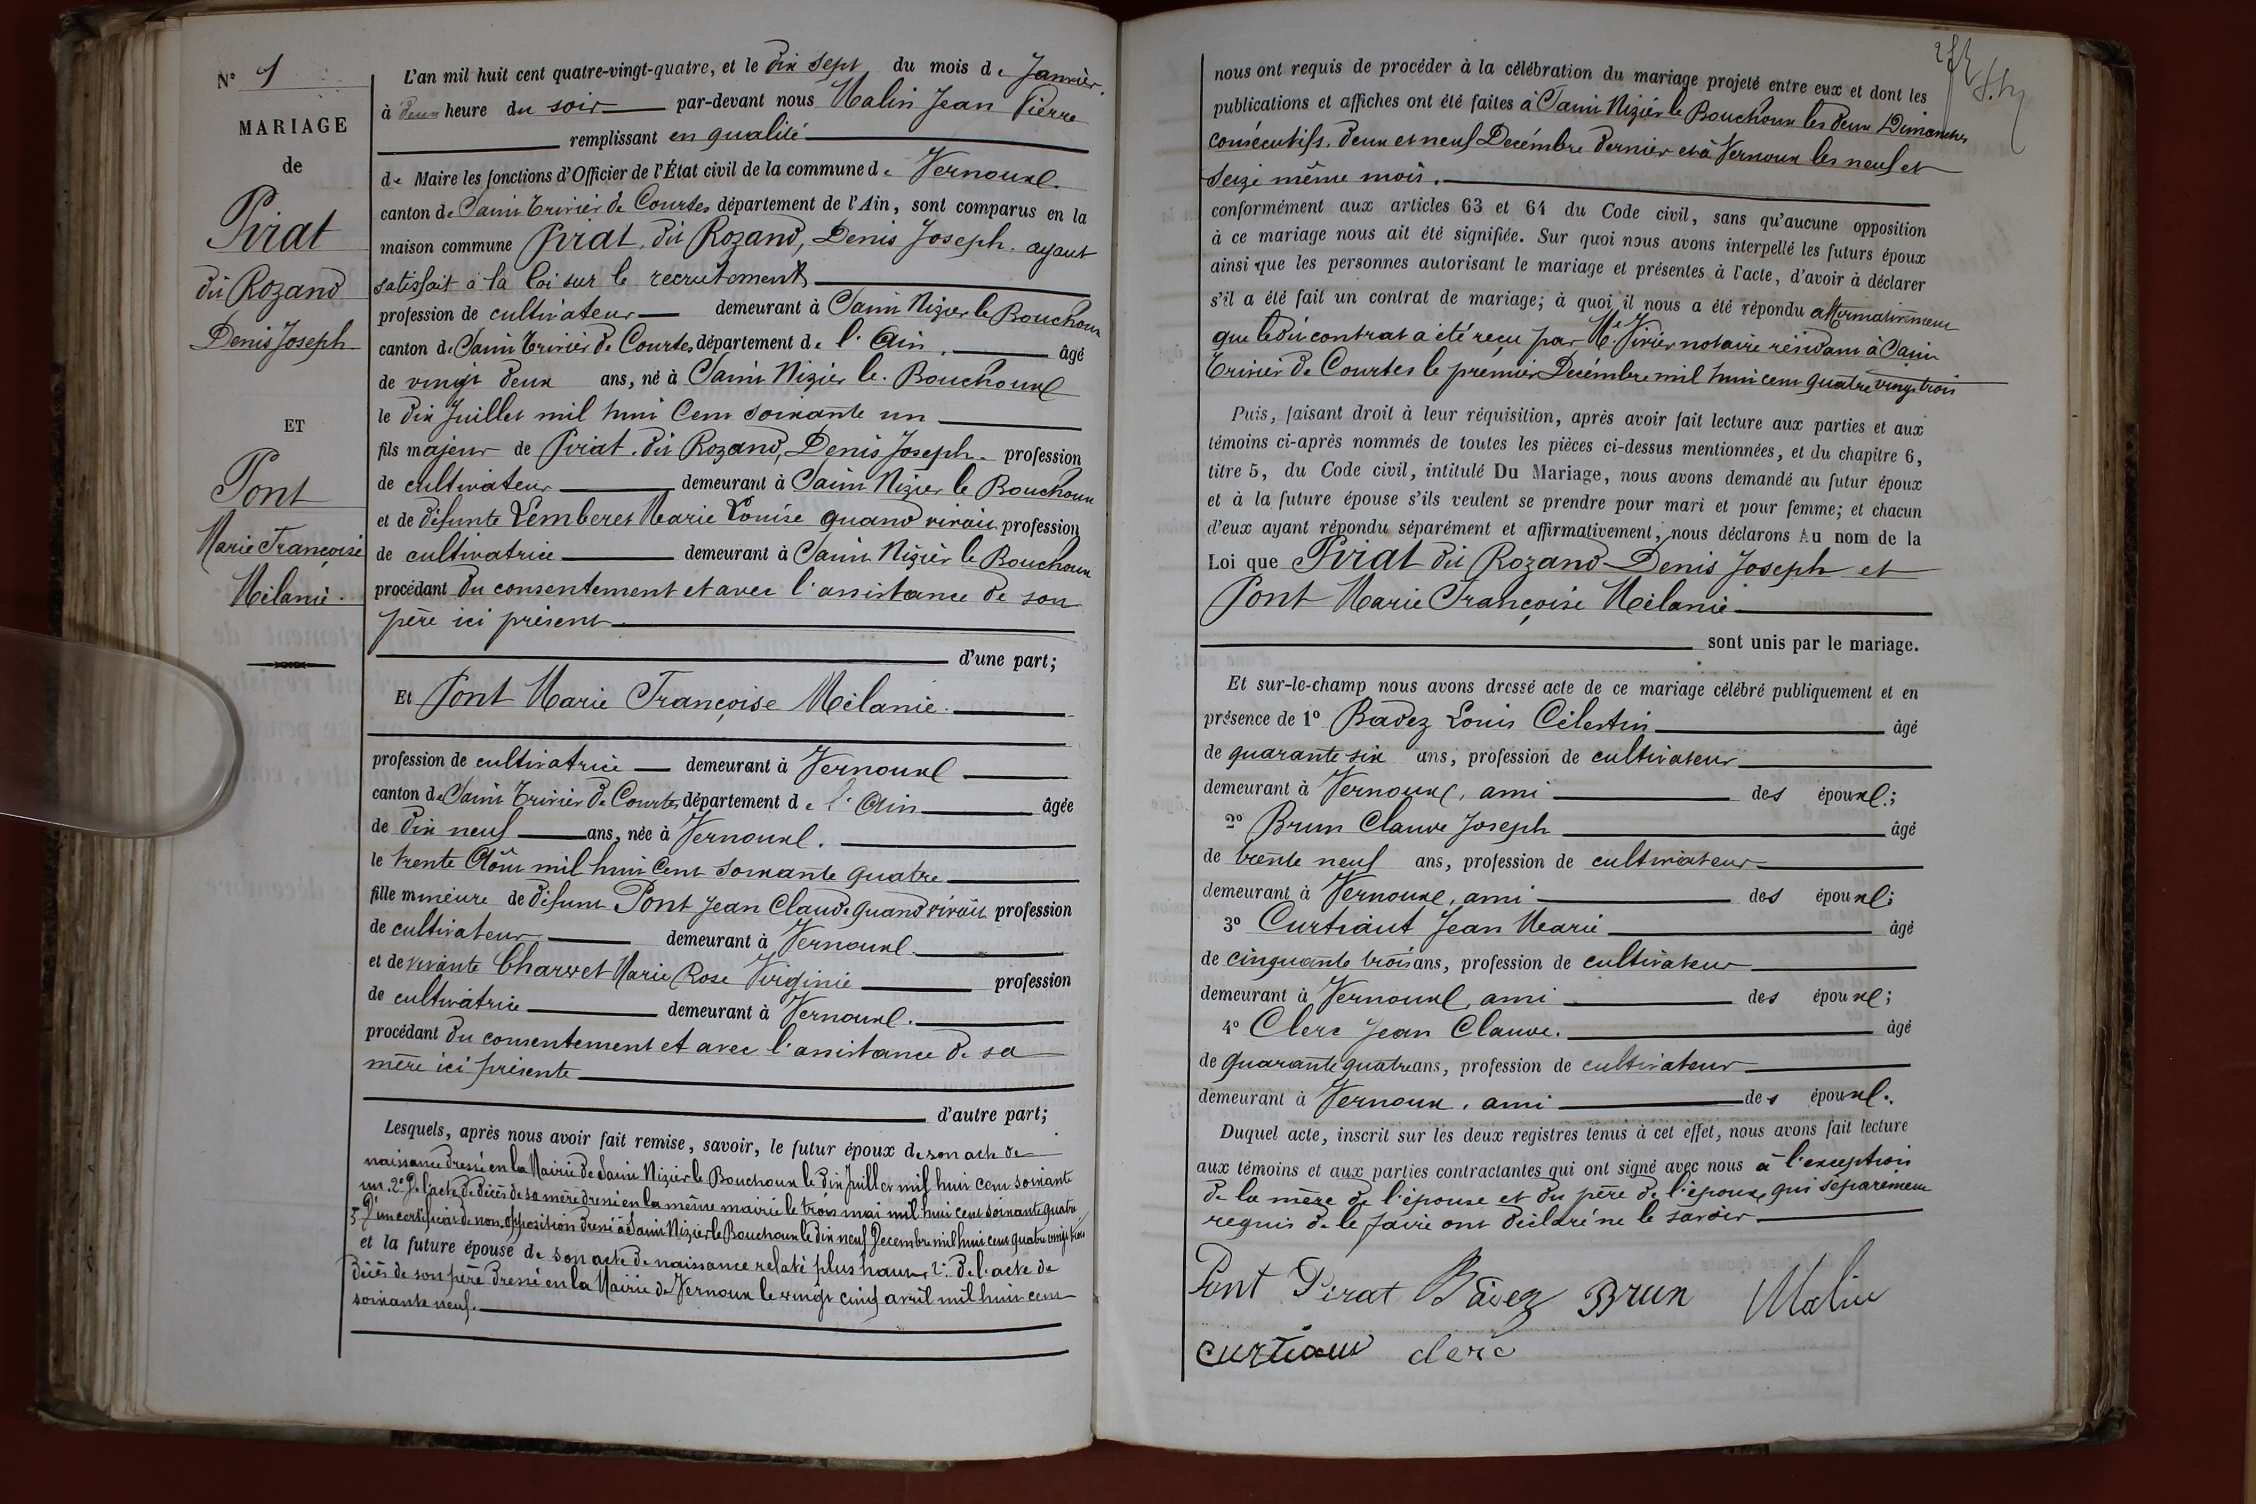 N° 1
MARIAGE
de
Pirat
dit Rozand
Denis Joseph
ET
Pont
Marie Françoise
Mélanie.
L'an mil huit cent quatre-vingt-quatre, et le dix sept du mois de Janvier
à deux heure du soir par-devant nous Malin Jean Pierre
remplissant en qualité
de Maire les fonctions d'Officier de l'État civil de la commune de Vernoux.
canton de Saint Trivier de Courtes département de l'Ain, sont comparus en la
maison commune Pirat dit Rozand, Denis Joseph ayant
satisfait à la loi sur le recrutement
profession de cultivateur demeurant à Saint Nizier le Bouchoux
canton de Saint Trivier de Courtes département de l'Ain, âgé
de vingt deux ans, né à Saint Nizier le Bouchoux
le dix Juillet mil huit Cent soixante un
fils majeur de Pirat dit Rozand, Denis Joseph profession
de cultivateur demeurant à Saint Nizier le Bouchoux
et de défunte Lemberet Marie Louise quand vivait profession
de cultivatrice demeurant à Saint Nizier le Bouchoux
procédant du consentement et avec l'assistance de son
père ici présent
d'une part;
Et Pont Marie Françoise Mélanie.
profession de cultivatrice demeurant à Vernoux
canton de Saint Trivier de Courtes département de l'Ain âgée
de dix neuf ans, née à Vernoux.
le trente Août mil huit Cent soixante quatre
fille mineure de défunt Pont Jean Claude quand vivait profession
de cultivateur demeurant à Vernoux.
et de vivante Charvet Marie Rose Virginie profession
de cultivatrice demeurant à Vernoux.
procédant du consentement et avec l'assistance de sa
mère ici présente
d'autre part;
Lesquels, après nous avoir fait remise, savoir, le futur époux de son acte de
naissance dressé en la Mairie de Saint Nizier le Bouchoux le dix Juillet mil huit cent soixante
un. 2° De l'acte de décès de sa mère dressé en la même mairie le trois mai mil huit cent soixante quatre
3° D'un certificat de non-opposition dressé à Saint Nizier le Bouchoux le dix neuf Decembre mil huit cent quatre vingt trois
et la future épouse de son acte de naissance relaté plus haut 2° De l'acte de
décès de son père dressé en la Mairie de Vernoux le vingt cinq avril mil huit cent
soixante neuf.
nous ont requis de procéder à la célébration du mariage projeté entre eux et dont les
publications et affiches ont été faites à Saint Nizier le Bouchoux les deux Dimanches
consécutifs, deux et neuf Decémbre dernier et à Vernoux les neuf et
seize même mois.
conformément aux articles 63 et 64 du Code civil, sans qu'aucune opposition
à ce mariage nous ait été signifiée. Sur quoi nous avons interpellé les futurs époux
ainsi que les personnes autorisant le mariage et présentes à l'acte, d'avoir à déclarer
s'il a été fait un contrat de mariage; à quoi il nous a été répondu affirmativement
que ledit contrat a été reçu par Me Vivier notaire résidant à Saint
Trivier de Courtes le premier Decémbre mil huit cent quatre vingt trois
Puis, faisant droit à leur réquisition, après avoir fait lecture aux parties et aux
témoins ci-après nommés de toutes les pièces ci-dessus mentionnées, et du chapitre 6,
titre 5, du Code civil, intitulé Du Mariage, nous avons demandé au futur époux
et à la future épouse s'ils veulent se prendre pour mari et pour femme; et chacun
d'eux ayant répondu séparément et affirmativement, nous déclarons Au nom de la
Loi que Pirat dit Rozand Denis Joseph et
Pont Marie Françoise Mélanie
sont unis par le mariage.
Et sur-le-champ nous avons dressé acte de ce mariage célébré publiquement et en
présence de 1° Badez Louis Célestin âgé
de quarante six ans, profession de cultivateur
demeurant à Vernoux, ami des époux;
2° Brun Claude Joseph âgé
de trente neuf ans, profession de cultivateur
demeurant à Vernoux, ami des époux;
3° Curtiaut Jean Marie âgé
de cinquante trois ans, profession de cultivateur
demeurant à Vernoux, ami des époux;
4° Clerc Jean Claude. âgé
de quarante quatre ans, profession de cultivateur
demeurant à Vernoux, ami des époux.
Duquel acte, inscrit sur les deux registres tenus à cet effet, nous avons fait lecture
aux témoins et aux parties contractantes qui ont signé avec nous à l'exception
de la mère de l'épouse et du père de l'époux, qui séparément
requis de le faire ont déclaré ne le savoir
Pont Pirat Badez Brun Malin
curtiaut clerc